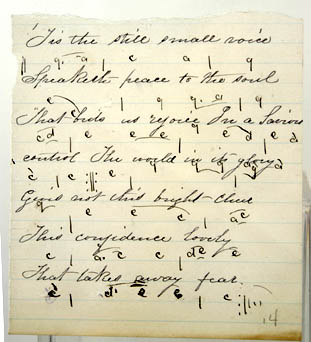 'Tis the still small voice
g. a c a g
Speaketh peace to the soul
c g g a g
That bids us rejoice In a Saviors
cd e e e e d e d
control The world in its glory
c e
Givis not this bright chue
e e c ae
This confidence lovely
c a c c de
That takes away fear.
e d e e c
14